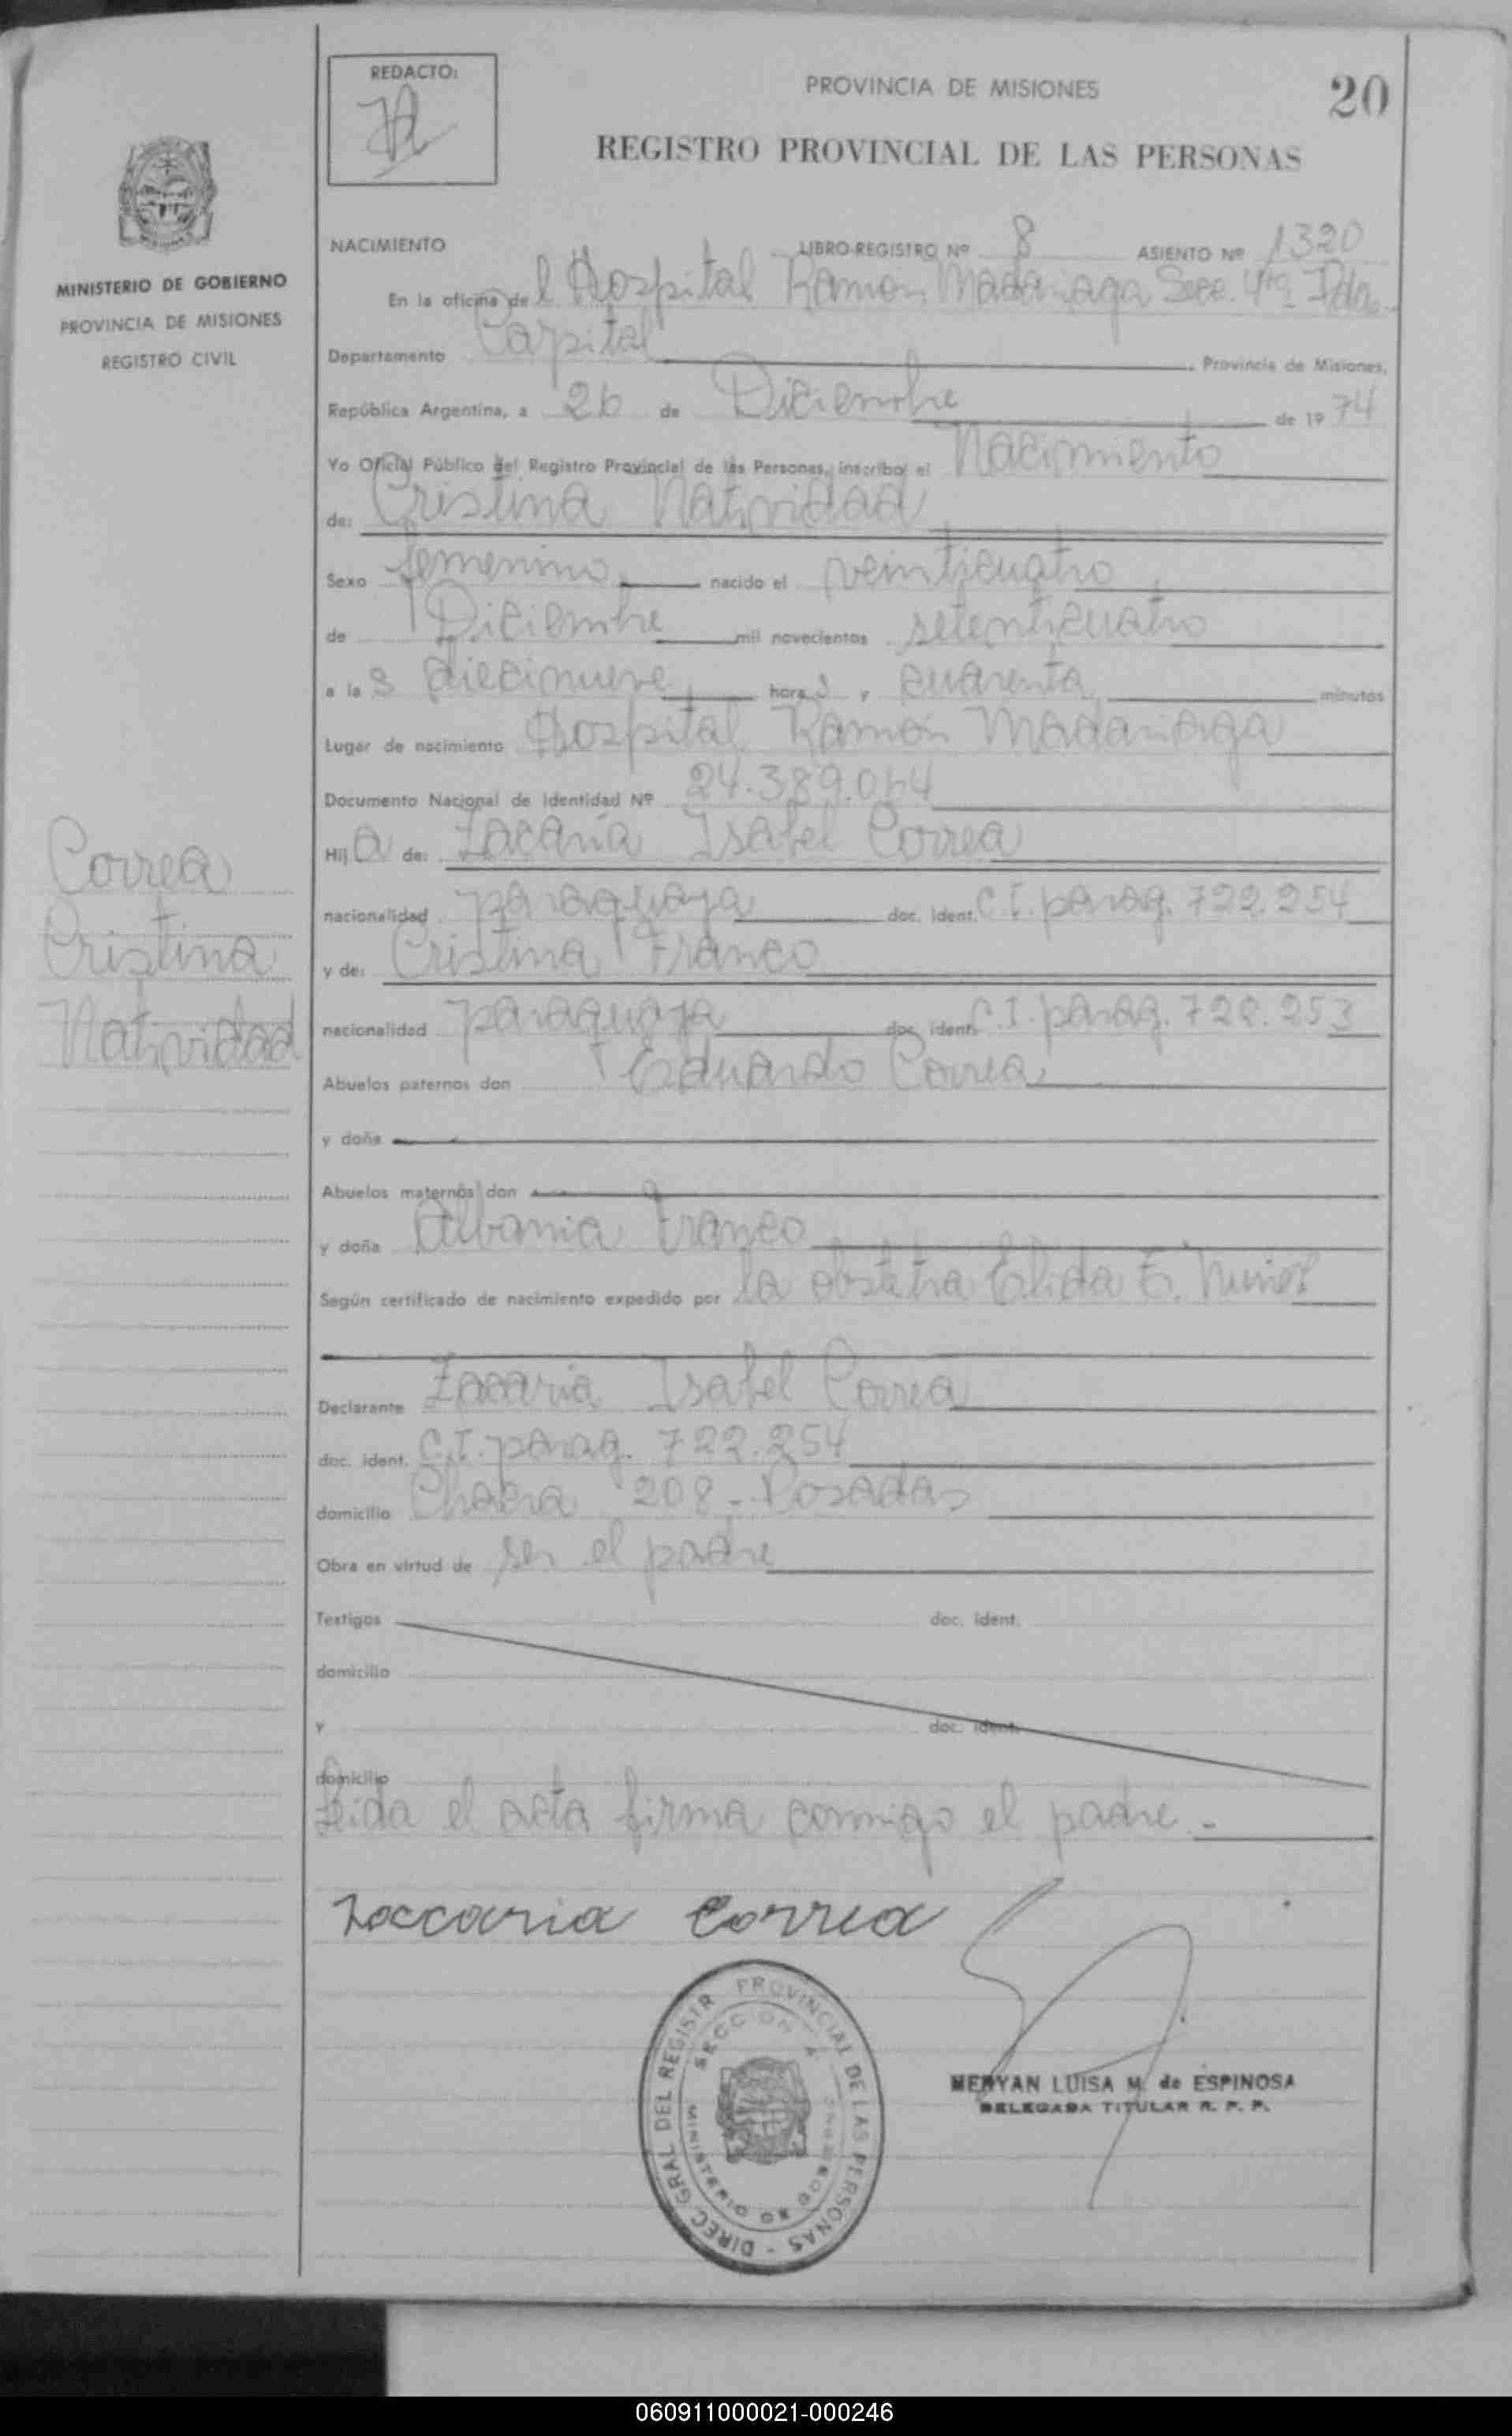 REDACTO:
PROVINCIA DE MISIONES
20
REGISTRO PROVINCIAL DE LAS PERSONAS
MINISTERIO DE GOBIERNO
PROVINCIA DE MISIONES
REGISTRO CIVIL
NACIMIENTO LIBRO-REGISTRO Nº 8 ASIENTO Nº 1320
En la oficina del Hospital Ramón Madariaga Secc. 4ta Pda.
Departamento Capital Provincia de Misiones,
República Argentina, a 26 de Diciembre de 1974
Yo Oficial Público del Registro Provincial de las Personas, inscribo el Nacimiento
de: Cristina Natividad
Sexo femenino nacido el veinticuatro
de Diciembre mil novecientos setenticuatro
a las diecinueve horas y cuarenta minutos
Lugar de nacimiento Hospital Ramón Madariaga
Documento Nacional de Identidad Nº 24.389.064
Hija de: Zacaria Isabel Correa
nacionalidad paraguaya doc. ident. C I. parag. 722.254
y de: Cristina Franco
nacionalidad paraguaya doc. ident. C I. parag. 722.253
Abuelos paternos don Eduardo Correa
y doña
Abuelos maternos don
y doña Albania Franco
Según certificado de nacimiento expedido por la obstetra Elida E. Nuñez
Declarante Zacaria Isabel Correa
doc. ident. C.I. parag. 722.254
domicilio Chacra 208 - Posadas
Obra en virtud de ser el padre
Testigos doc. ident.
domicilio
y doc. ident.
domicilio
Leida el acta firma conmigo el padre.-
Correa
Cristina
Natividad
Zaccaria Correa
DIREC. GRAL DEL REGISTR PROVINCIAL DE LAS PERSONAS -
SECCION 4
MINISTERIO DE GOBIERNO
MERYAN LUISA M. de ESPINOSA
DELEGADA TITULAR R. P. P.
060911000021-000246